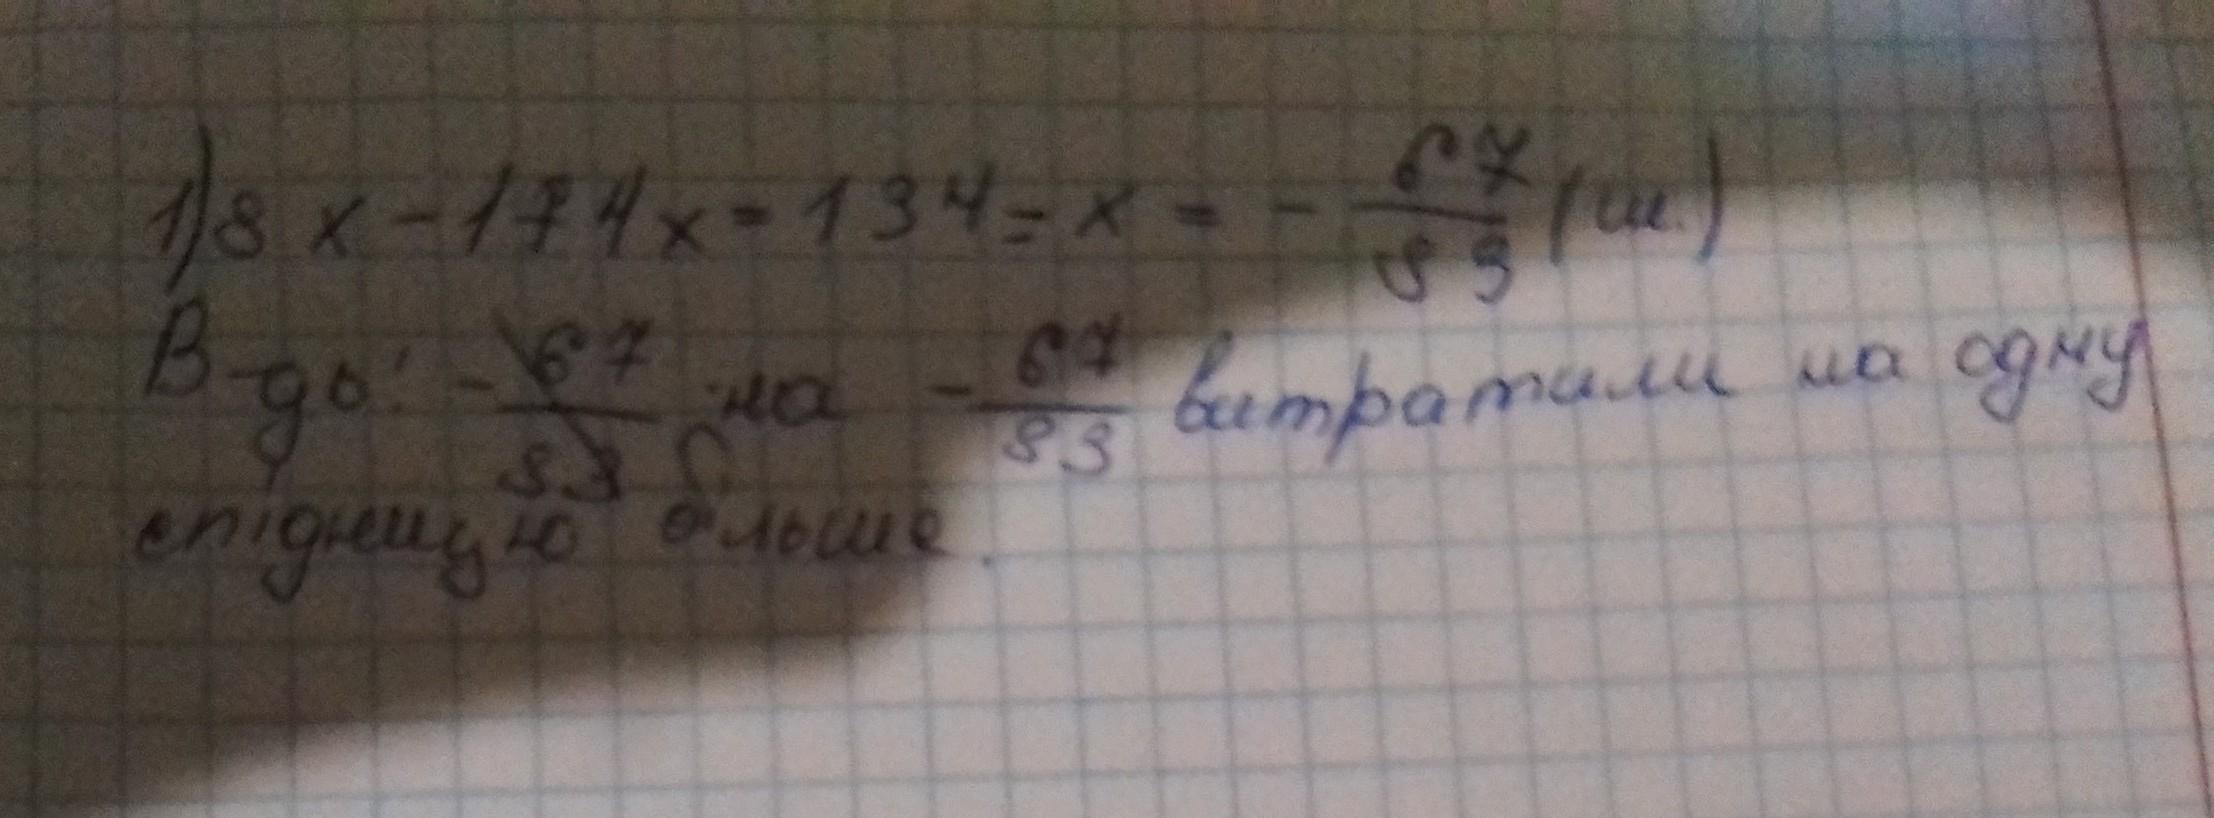 1) 8x - 174x = 134 = x = - 67/83 (ш.)
В-дь: - 67/83 на - 67/83 витратили на одну
спідницю більше.